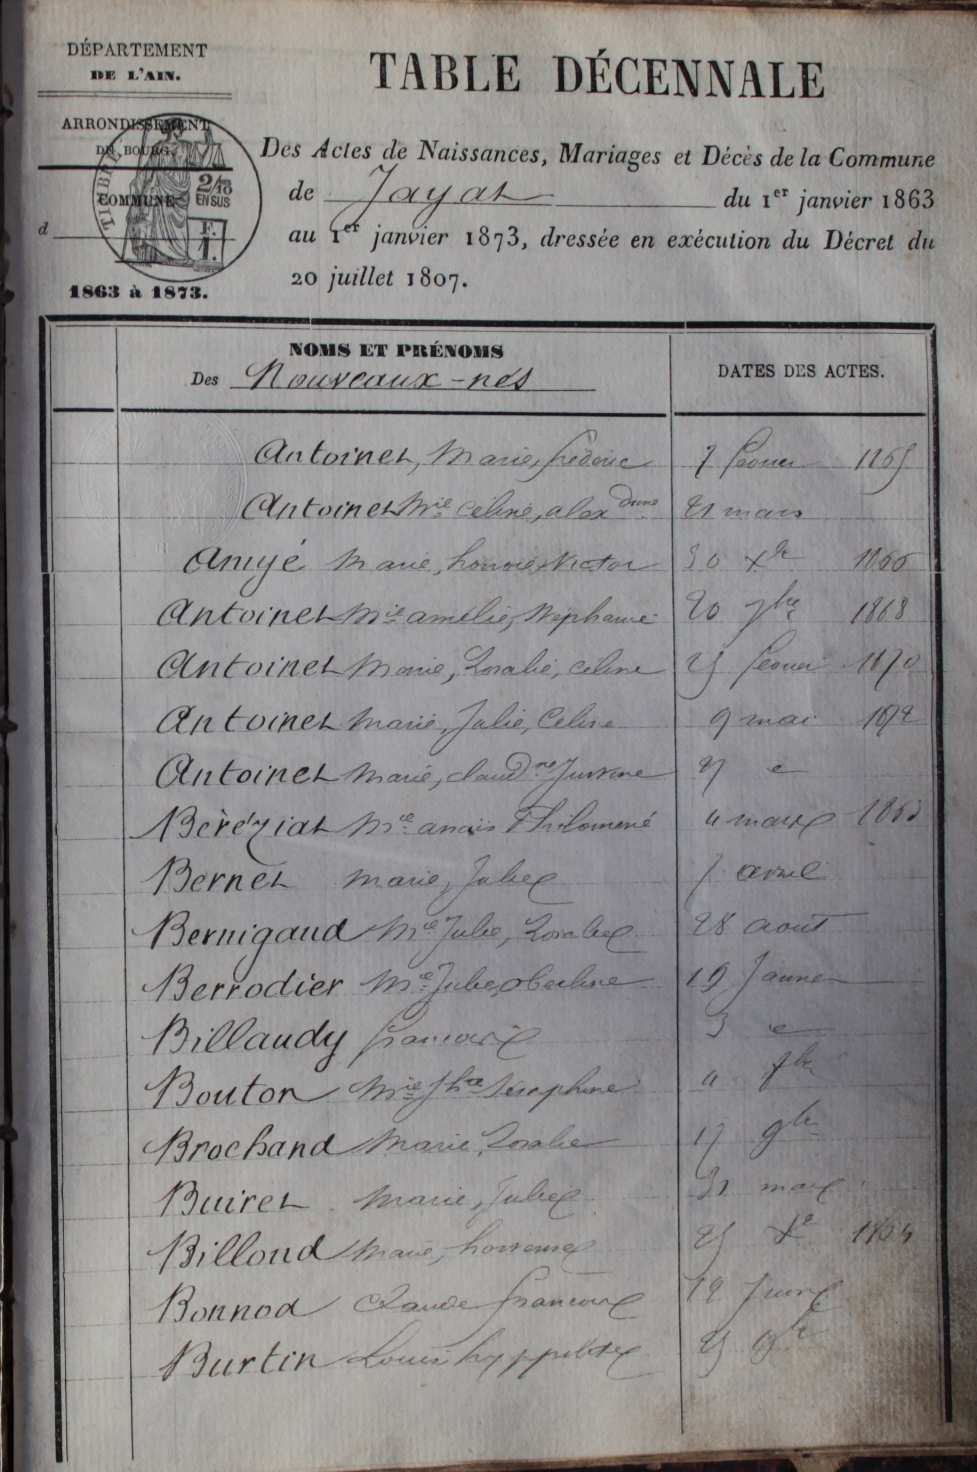 DÉPARTEMENT
DE L'AIN.
ARRONDISSEMENT
DE BOURG.
COMMUNE
d
1863 à 1873.
TIMBRE
2/10
EN SUS
TABLE DÉCENNALE
Des Actes de Naissances, Mariages et Décès de la Commune
de Jayat du 1er janvier 1863
au 1er janvier 1873, dressée en exécution du Décret du
20 juillet 1807.
NOMS ET PRÉNOMS
Des Nouveaux-nés
DATES DES ACTES.
Antoinet, Marie, frédéric 7 février 1865
Antoinet Mie Celine, alexdrine 21 mars
Amyé Marie, Victor 30 Xbre 1866
Antoinet Mie amélie, Stéphanie 20 7bre 1868
Antoinet Marie, Rosalie, celine 25 février 1870
Antoinet Marie, Julie, Celine 9 mai 1872
Antoinet Marie, claudne
Béréziat Mie anaïs Philomené 4 mars 1863
Bernet marie, Julie avril
Bernigaud Mie Julie, Rosalie 28 aout
Berrodier Mie Julie 19 Janvier
Billaudy françois
Bouton Mie Séraphine
Brochand Marie Rosalie 9bre
Buiret Marie, Julie 31 mars
Billoud Marie, 25 Xbre 1864
Bonnod Claude françois 12 Juin
Burtin Louis hyppolite 25